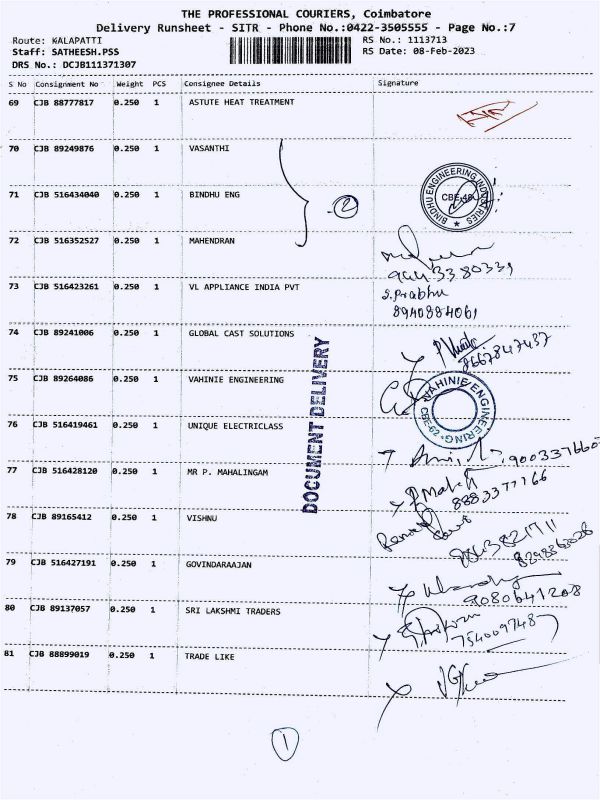 THE PROFESSIONAL COURIERS, Coimbatore
Delivery Runsheet - SITR - Phone No.:0422-3505555 - Page No.:7
Route: KALAPATTI RS No.: 1113713
Staff: SATHEESH.PSS RS Date: 08-Feb-2023
DRS No.: DCJB111371307
S No Consignment No Weight PCS Consignee Details Signature
69 CJB 88777817 0.250 1 ASTUTE HEAT TREATMENT
70 CJB 89249876 0.250 1 VASANTHI
71 CJB 516434040 0.250 1 BINDHU ENG
2
BINDHU ENGINEERING INDUSTRIES
72 CJB 516352527 0.250 1 MAHENDRAN
9443380339
73 CJB 516423261 0.250 1 VL APPLIANCE INDIA PVT
S.Prabhu
8940884061
74 CJB 89241006 0.250 1 GLOBAL CAST SOLUTIONS
8667847437
75 CJB 89264086 0.250 1 VAHINIE ENGINEERING
VAHINIE ENGINEERING
CBE-62
DOCUMENT DELIVERY
76 CJB 516419461 0.250 1 UNIQUE ELECTRICLASS
77 CJB 516428120 0.250 1 MR P. MAHALINGAM
78 CJB 89165412 0.250 1 VISHNU
79 CJB 516427191 0.250 1 GOVINDARAAJAN
9080641208
80 CJB 89137057 0.250 1 SRI LAKSHMI TRADERS
81 CJB 88899019 0.250 1 TRADE LIKE
1